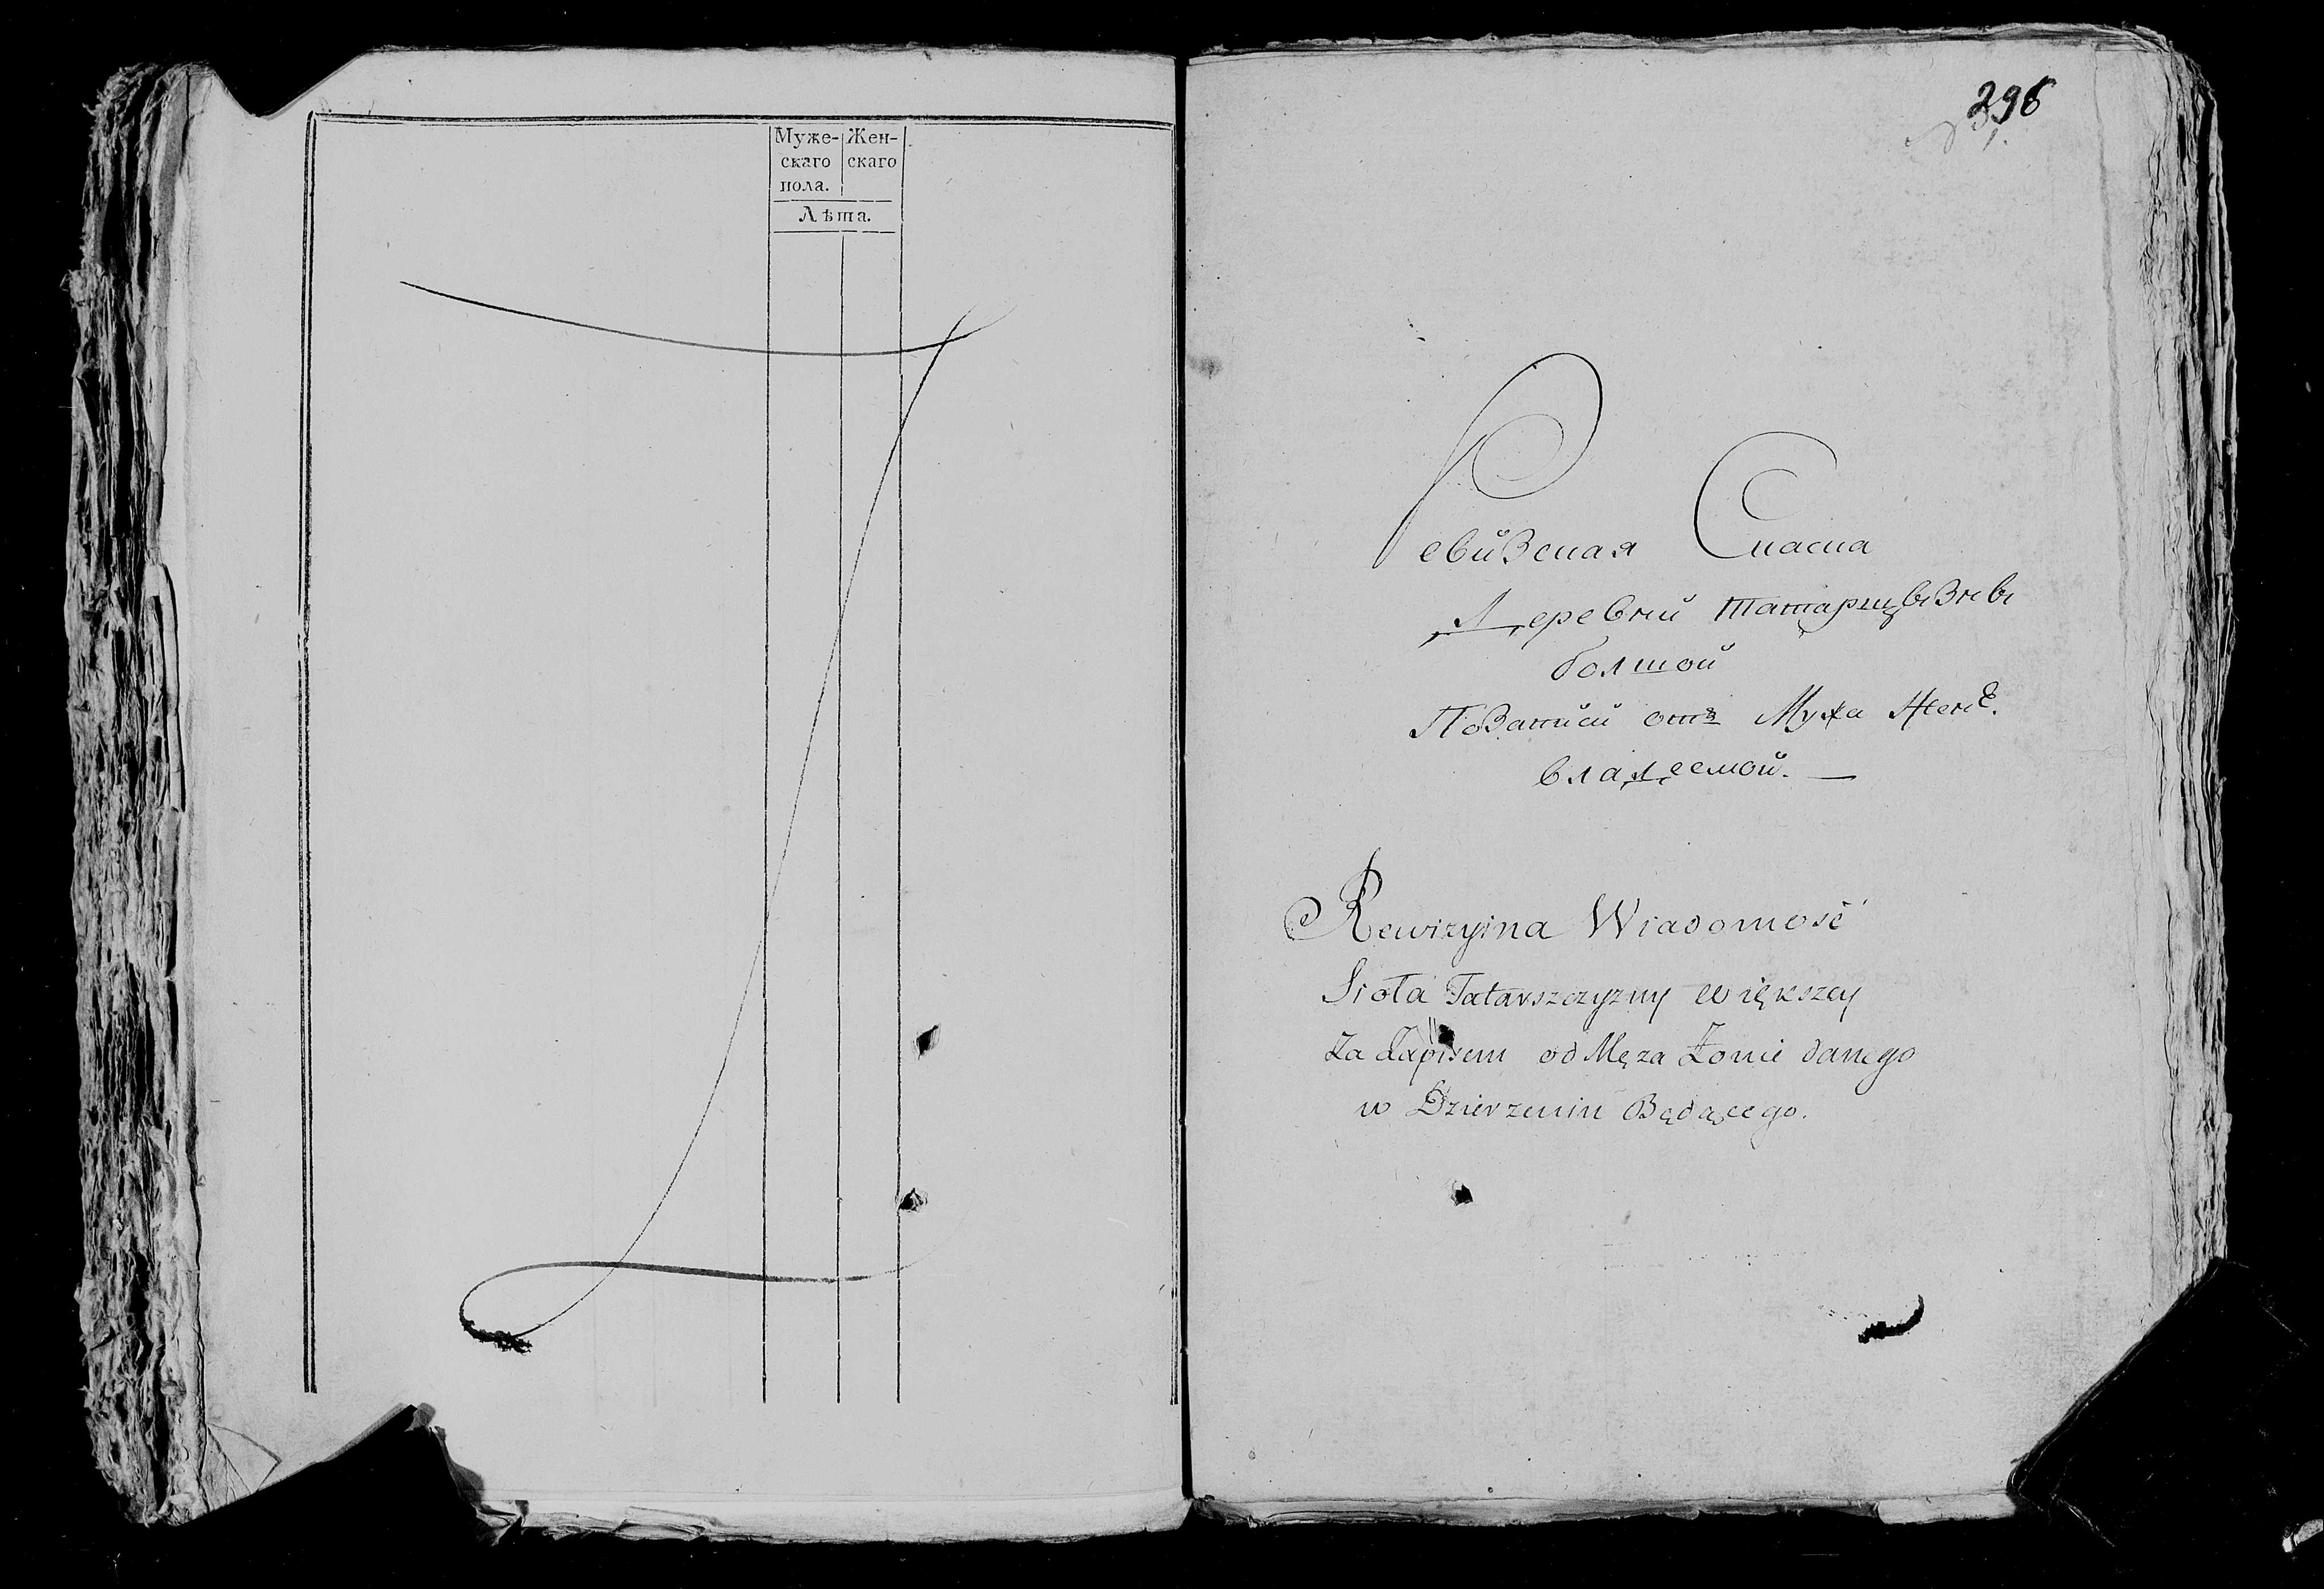 Муже- Жен-
скаго скаго
пола.
Лѣта.
396
Ревизская Скаска
Деревни
болшой
По Записи отъ Мужа Жене.
владеемой. —
Rewizyina Wiadomość
Sioła Tatarszczyzny większey
Za Zapisem od Męza Zonie danego
w Dzierzeniu Będącego.